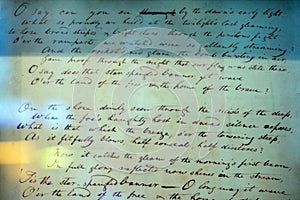 O say, can you see by the dawn's early light
What so proudly we hail'd at the twilight's last gleaming
Whose broad stripes & bright stars through the perilous fight
O'er the ramparts we watch'd were so gallantly streaming?
And the rocket's red glare, the bomb bursting in air
Gave proof through the night that our flag was still there
O say does that star spangled banner yet wave
O'er the land of the free & the home of the brave?
On the shore dimly seen through the mists of the deep,
Where the foe's haughty host in dread silence reposes,
What is that which the breeze, o'er the towering steep,
As it fitfully blows, half conceals, half discloses?
Now it catches the gleam of the morning's first beam,
In full glory reflected now shines in the stream,
'Tis the star-spangled banner — O long may it wave
O'er the land of the free & the home